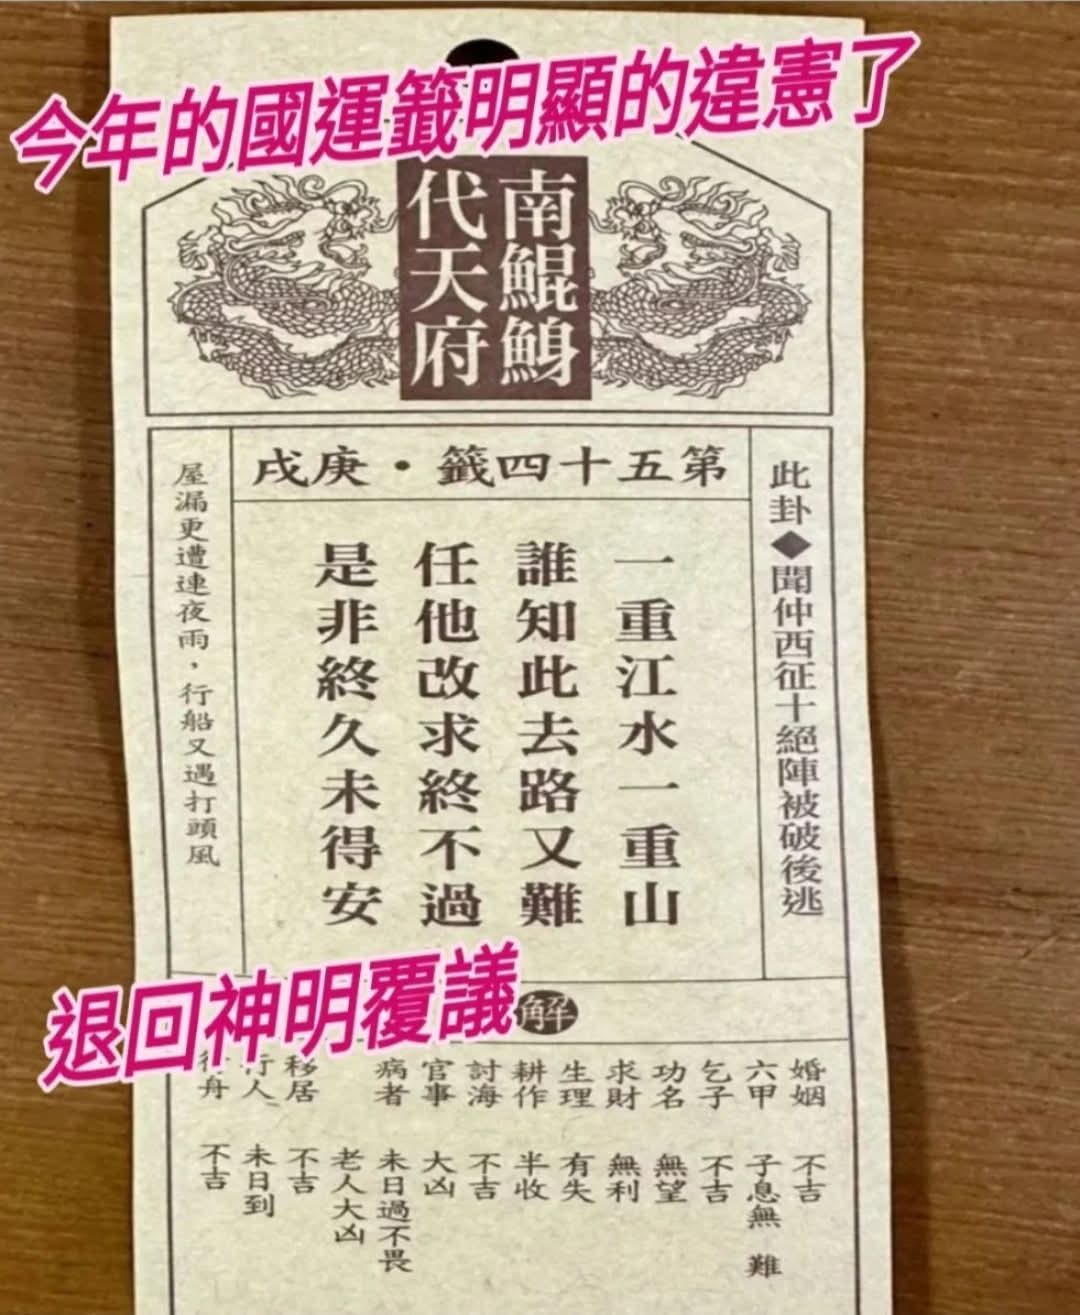 今年的國運籤明顯的違憲了
南鯤鯓
代天府
第五十四籤・庚戌
此卦◆聞仲西征十絕陣被破後逃
一重江水一重山
誰知此去路又難
任他改求終不過
是非終久未得安
屋漏更遭連夜雨，行船又遇打頭風
退回神明覆議
解
婚姻 不吉
六甲 子息無 難
乞子 不吉
功名 無望
求財 無利
生理 有失
耕作 半收
討海 不吉
官事 大凶
病者 未日過不畏
老人大凶
移居 不吉
行人 未日到
行舟 不吉